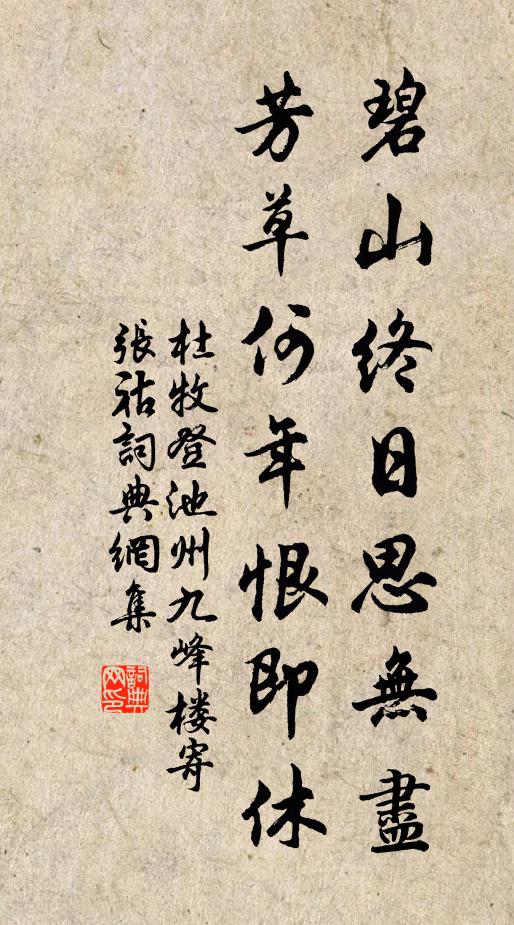 碧山終日思無盡
芳草何年恨即休
杜牧登池州九峰楼寄
張祜詞典網集
詞典
网印